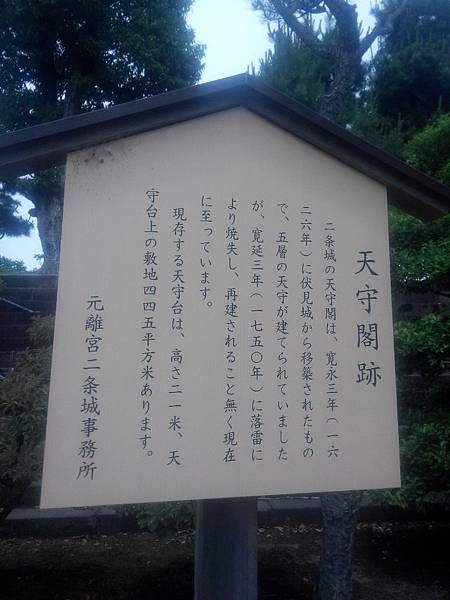 天守閣跡
二条城の天守閣は、寛永三年(一六
二六年)に伏見城から移築されたもの
で、五層の天守が建てられていました
が、寛延三年(一七五〇年)に落雷に
より焼失し、再建されること無く現在
に至っています。
現存する天守台は、高さ二一米、天
守台上の敷地四四五平方米あります。
元離宮二条城事務所